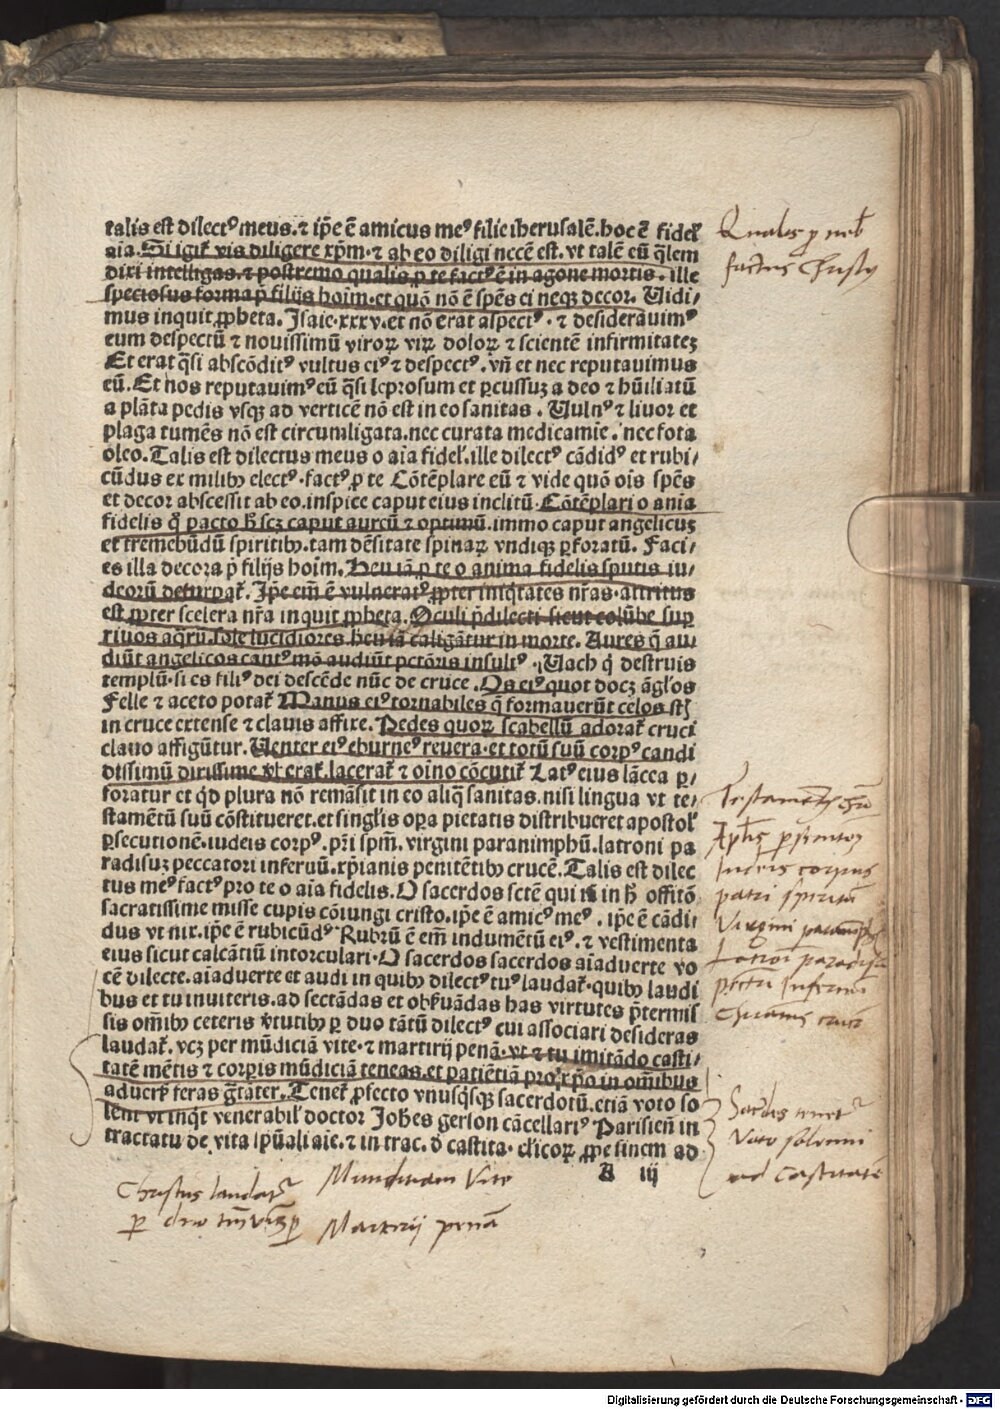 talis est dilectꝰ meus. ⁊ ip̄e ē amicus meꝰ filie iherusalē. hoc ē fidel̓
aia. Si igit̄ vis diligere xp̄m ⁊ ab eo diligi nccē est. vt talē eū q̄lem
dixi intelligas. ⁊ postremo qualis ꝓ te factꝰ ē in agone mortis. ille
speciosus forma p̄ filijs hoim. et quō nō ē sp̄es ei neqꝫ decor. Uidi/
mus inquit ꝓpheta. Isaie. xxxv. et nō erat aspectꝰ. ⁊ desiderauimꝰ
eum despectū ⁊ nouissimū viroꝝ viꝝ doloꝝ ⁊ scientē infirmitateꝫ
Et erat q̄si abscōditꝰ vultus eiꝰ ⁊ despectꝰ. vn̄ et nec reputauimus
eū. Et nos reputauimꝰ eū q̄si leprosum et ꝑcussuꝫ a deo ⁊ hūiliatū
a plāta pedis vsqꝫ ad verticē nō est in eo sanitas. Uulnꝰ ⁊ liuor et
plaga tumēs nō est circumligata. nec curata medicamie. nec fota
oleo. Talis est dilectus meus o aīa fidel̓. ille dilectꝰ cādidꝰ et rubi/
cūdus ex milibꝫ electꝰ. factꝰ ꝓ te Cōtēplare eū ⁊ vide quō oīs sp̄es
et decor abscessit ab eo. inspice caput eius inclitū. Cōtēplari o anīa
fidelis q̄ pacto h̄ scꝫ caput aureū ⁊ optimū. immo caput angelicus
et tremebūdū spiritibꝫ. tam dēsitate spinaꝝ vndiqꝫ ꝑforatū. Faci/
es illa decora p̄ filijs hoīm. Heu iā ꝓ te o anima fidelis sputis iu/
deorū deturpat̄. Ip̄e em̄ ē vulneratꝰ ꝓpter iniq̄tates nr̄as. attritus
est ꝓpter scelera nr̄a inquit ꝓpheta. Oculi p̄dilecti sicut colūbe sup
riuos aq̄rū. sole lucidiores heu iā caligātur in morte. Aures q̄ au
diūt angelicos cantꝰ mō audiūt pctōris insultꝰ. Uach q̄ destruis
templū. si es filiꝰ dei descēde nūc de cruce. Os eiꝰ quot docꝫ āg̓los
Felle ⁊ aceto potat̄ Manus eiꝰ tornabiles q̄ formauerūt celos st̄
in cruce extense ⁊ clauis affixe. Pedes quoꝝ scabellū adorat̄ cruci
clauo affigūtur. Uenter eiꝰ eburneꝰ reuera. et totū suū corpꝰ candi
dissimū dirissime vt erat̄. lacerat̄ ⁊ oīno cōcutit̄ Latꝰ eius lācea ꝑ/
foratur et qd̓ plura nō remāsit in eo aliq̄ sanitas. nisi lingua vt te/
stamētū suū cōstitueret. et singlis oꝑa pietatis distribueret apostol̓
ꝑsecutionē. iudeis corpꝰ. pr̄i spm̄. virgini paranimphū. latroni pa
radisuꝫ peccatori infernū. xp̄ianis penitētibꝫ crucē. Talis est dilec
tus meꝰ factꝰ pro te o aīa fidelis. O sacerdos sctē qui is in h̄ offitō
sacratissime misse cupis cōiungi cristo. ip̄e ē amicꝰ meꝰ. ip̄e ē cādi/
dus vt nix. ip̄e ē rubicūdꝰ Rubrū ē em̄ indumētū eiꝰ. ⁊ vestimenta
eius sicut calcātiū in torculari. O sacerdos sacerdos aīaduerte vo
cē dilecte. aīaduerte et audi in quibꝫ dilectꝰ tuꝰ laudat̄. quibꝫ laudi
bus et tu inuiteris. ad sectādas et obẜuādas has virtutes p̄termis
sis om̄ibꝫ ceteris v̄tutibꝫ ꝑ duo tātū dilectꝰ cui associari desideras
laudat̄. vcꝫ per mūdiciā vite. ⁊ martirij penā. vt ⁊ tu imitādo casti/
tatē mētis ⁊ corꝑis mūdiciā teneas. et patiētiā pro xp̄o in om̄ibus
aduerẜ feras gr̄atāter. Tenet̄ ꝓfecto vnusq̄sqꝫ sacerdotū. etiā voto so
lēni vt inq̄t venerabil̓ doctor Johēs gerson cācellariꝰ Parisień in
tractatu de vita ip̄uali aīe. ⁊ in trac. d̓ castita. cl̓icoꝝ ꝓpe finem ad
A iij
Qualis ꝓ nob̄
factus Christꝰ
Testamentū
Ap̄lis persecutōem
Iudeis corpus
patri spiritū
Virgini paranymphū
Latroni paradisū
pctori Infernū
Chrianis crucē
Sacerdos tenet̄
Voto solenni
ad castitatē
Christus laudat̄
ꝑ duo
Munditiam Vite
Martirij penā
Digitalisierung gefördert durch die Deutsche Forschungsgemeinschaft - DFG